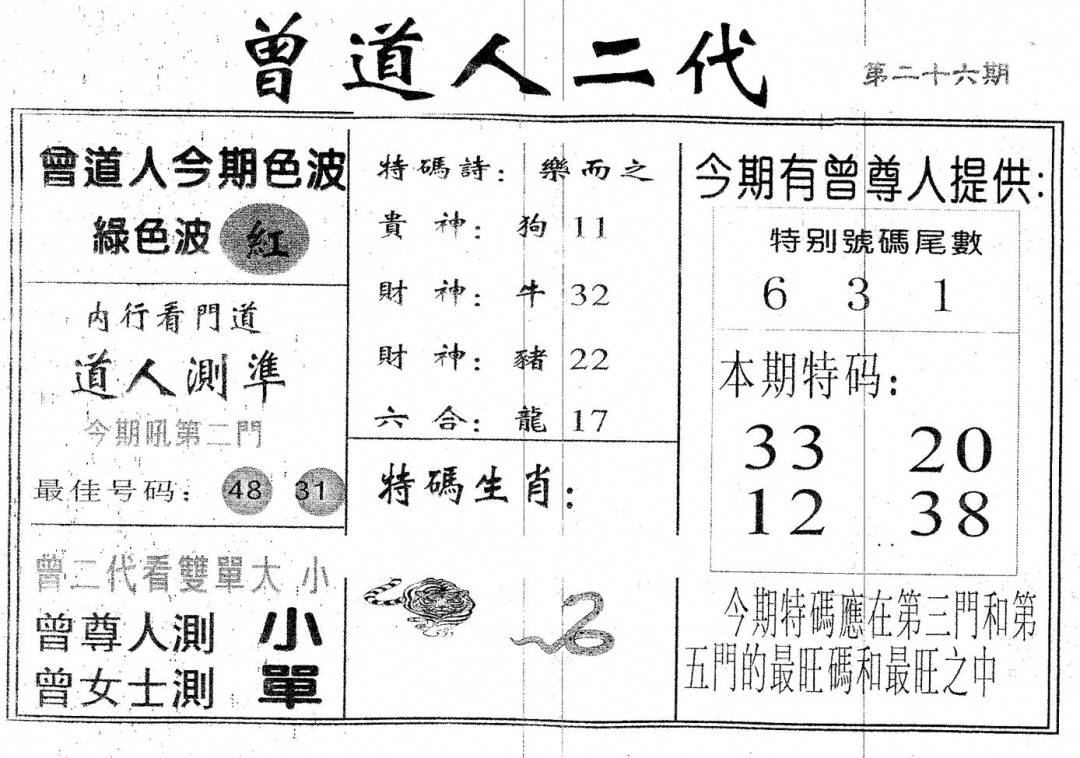 曾道人二代
第二十六期
曾道人今期色波
綠色波 紅
内行看門道
道人測準
今期吼第二門
最佳号码： 48 31
曾二代看雙單大 小
曾尊人測 小
曾女士測 單
特碼詩： 樂而之
貴 神： 狗 11
財 神： 牛 32
財 神： 豬 22
六 合： 龍 17
特碼生肖：
今期有曾尊人提供：
特别號碼尾數
6 3 1
本期特码：
33 20
12 38
今期特碼應在第三門和第
五門的最旺碼和最旺之中